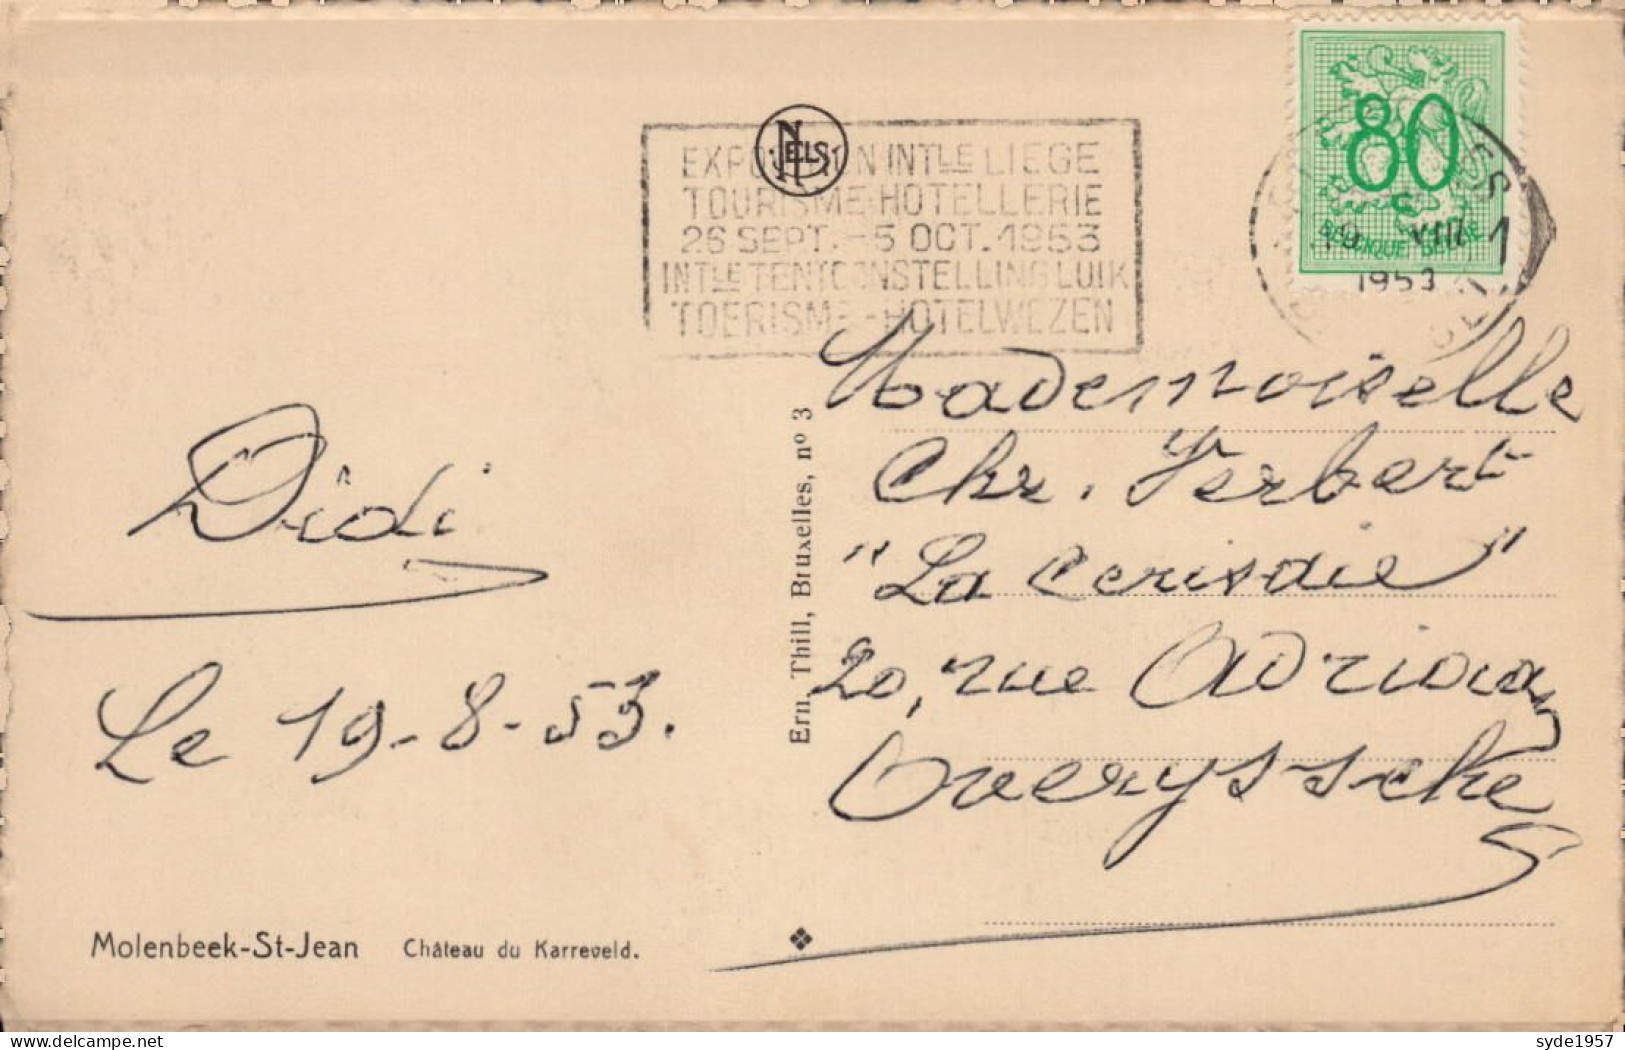 NELS
EXPOSITION INTLE LIEGE
TOURISME-HOTELLERIE
26 SEPT.-5 OCT.1953
INTLE TENTOONSTELLING LUIK
TOERISME-HOTELWEZEN
80
BELGIQUE BELGIE
19 VIII 1
1953
Mademoiselle
Chr. Herbert
"La Cerisaie"
20, rue
Overyssche
Didi
Le 19-8-53.
Ern. Thill, Bruxelles, nº 3
Molenbeek-St-Jean Château du Karreveld.
syde1957